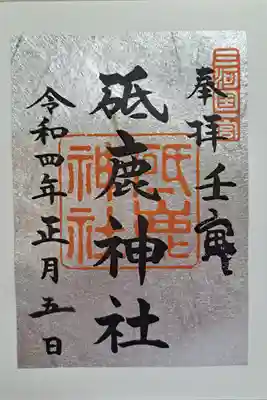 三河国一宮
奉拝 壬寅
砥鹿神社
砥鹿神社
令和四年正月五日